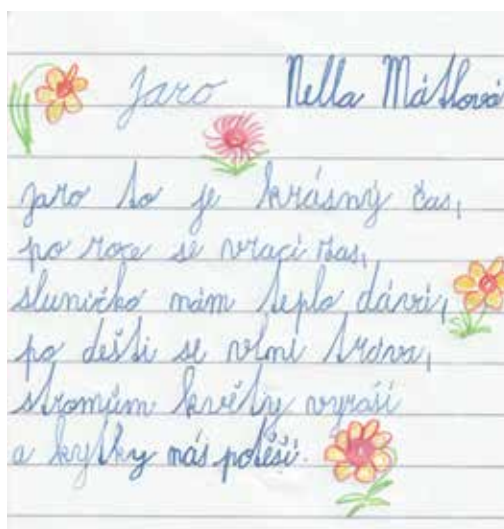 Jaro Nella Mátlová
Jaro to je krásný čas,
po roce se vrací zas,
sluníčko nám teplo dává,
po dešti se vlní tráva,
stromům květy vyraší
a kytky nás potěší.